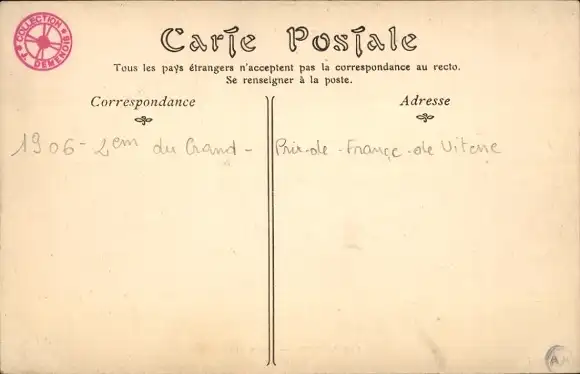 COLLECTION T. DEMENOIS
Carte Postale
Tous les pays étrangers n'acceptent pas la correspondance au recto.
Se renseigner à la poste.
Correspondance
Adresse
1906 - 2em du Grand - Prix - de - France - de Vitesse